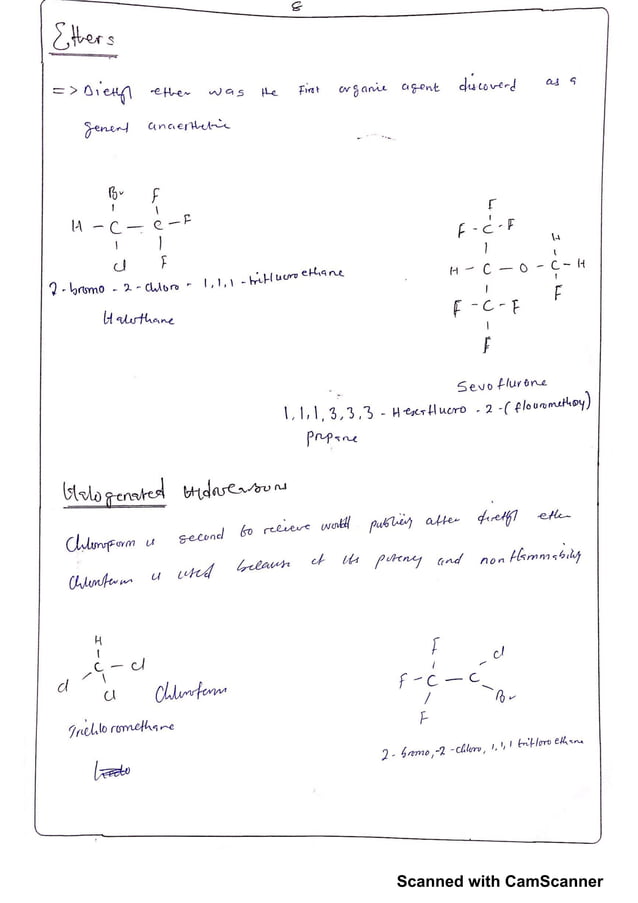 8
Ethers
=> Diethyl ether was the First organic agent discoverd as a
general anaesthetic
Br F
H - C - C - F
Cl F
2-bromo-2-chloro-1,1,1-trifluoroethane
Halothane
F
F - C - F
H
H - C - O - C - H
F - C - F F
F
Sevoflurane
1,1,1,3,3,3-Hexafluoro-2-(flouromethoxy)
propane
Halogenated Hydrocarbons
Chloroform is second to recieve world publicity after diethyl ether
Chloroform is used because of its potency and nonflammability
H
C - Cl
Cl Cl Chloroform
Trichloromethane
F Cl
F - C - C
F Br
2-bromo,-2-chloro,1,1,1 trifloro ethane
Scanned with CamScanner